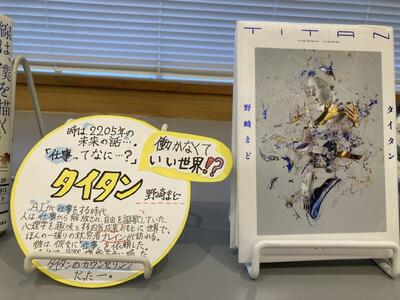 線は、僕を描く
時は2205年の
未来の話…
「仕事ってなに…?」
働かなくて
いい世界!?
タイタン
野﨑まど
"AI"が仕事をする時代
人は仕事から解放され、自由を謳歌していた。
心理学を趣味とする内匠成果のもとに、世界で
ほんの一握りの就労者ナレインが訪れる。
彼は、彼女に仕事を依頼した。
タイタンのカウンセリング
だった―。
TITAN
野﨑まど
タイタン